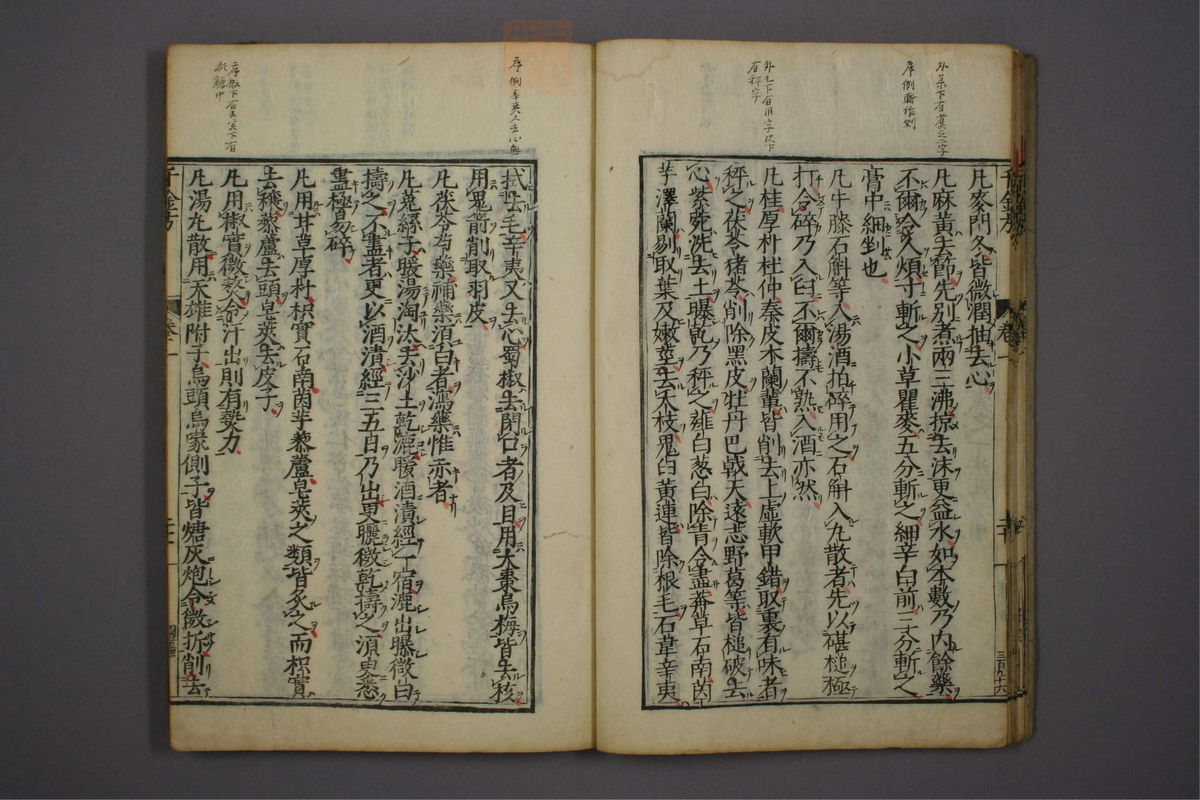 外葉下有
序例
外
有
凡麥門冬皆微潤抽去心
凡麻黃去節先別煮兩三沸掠去沫更益水如本數乃內餘藥
不爾令人煩寸斬之小草瞿麥五分斬之細辛白前三分斬之
膏中細剉也
凡牛膝石斛等入湯酒拍碎用之石斛入丸散者先以碪槌極
打令碎乃入臼不爾擣不熟入酒亦然
凡桂厚朴杜仲秦皮木蘭輩皆削去上虛軟甲錯取裏有味者
秤之茯苓猪苓削除黑皮牡丹巴戟天遠志野葛等皆槌破去
心紫菀洗去土曝乾乃秤之薤白葱白除青令盡莽草石南茵
芋澤蘭剔取葉及嫩莖去大枝鬼臼黃連皆除根毛石韋辛夷
序例
拭去毛辛夷又去心蜀椒去閉口者及目用大棗烏梅皆去核
用鬼箭削取羽皮
凡茯苓芍藥補藥須白者瀉藥惟赤者
凡菟絲子暖湯淘汰去沙土乾漉暖酒漬經一宿漉出曝微白
擣之不盡者更以酒漬經三五日乃出更曬微乾擣之須臾悉
盡極易碎
凡用甘草厚朴枳實石南茵芋藜蘆皂莢之類皆炙之而枳實
去穰藜蘆去頭皂莢去皮子
凡用椒實微熬令汗出則有勢力
凡湯丸散用天雄附子烏頭烏喙側子皆煻灰炮令微坼削去
千金方
卷一